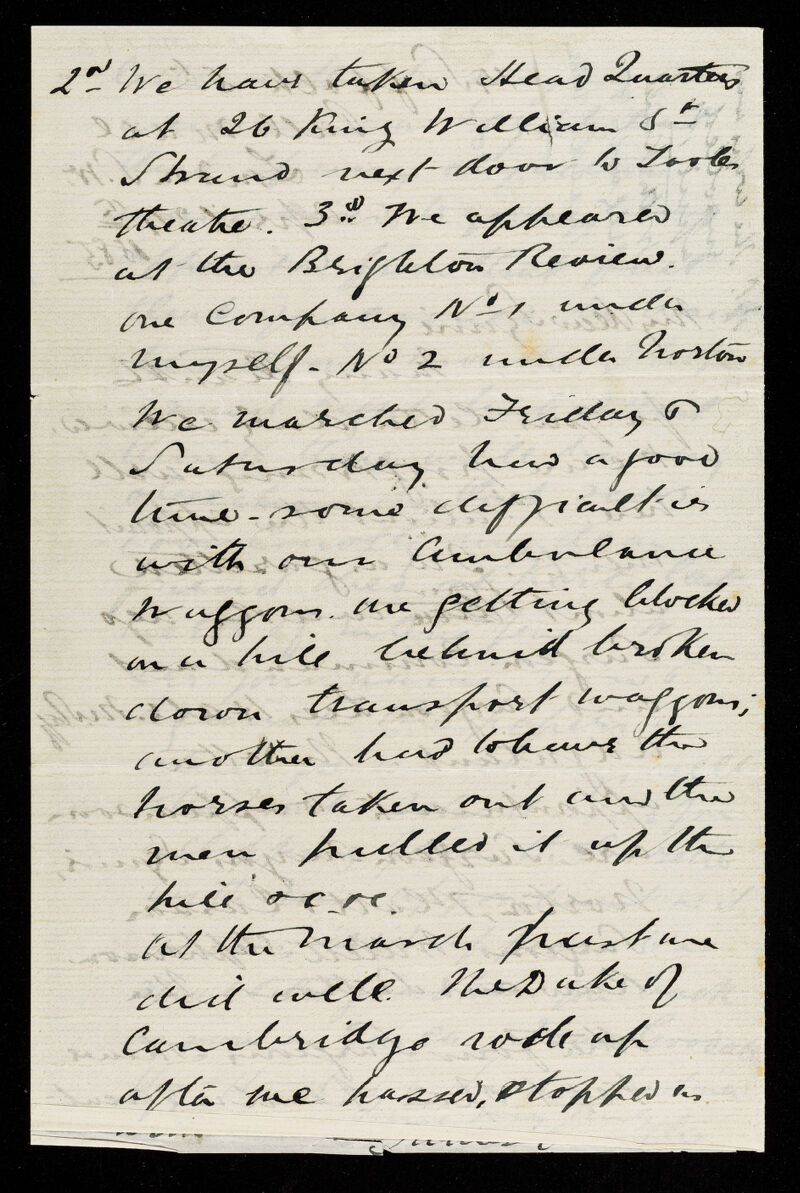 2nd We have taken Head Quarters
at 26 King William St
Strand next door to Tooles
theatre. 3rd We appeared
at the Brighton Review.
one Company No 1 under
myself - No 2 under Norton
We marched Friday &
Saturday had a good
time - some difficulties
with our Ambulance
Waggons. one getting blocked
on a hill behind broken
down transport waggons;
another had to have the
horses taken out and the
men pulled it up the
hill &c &c.
At the march past we
did well. The Duke of
Cambridge rode up
after we passed, stopped us